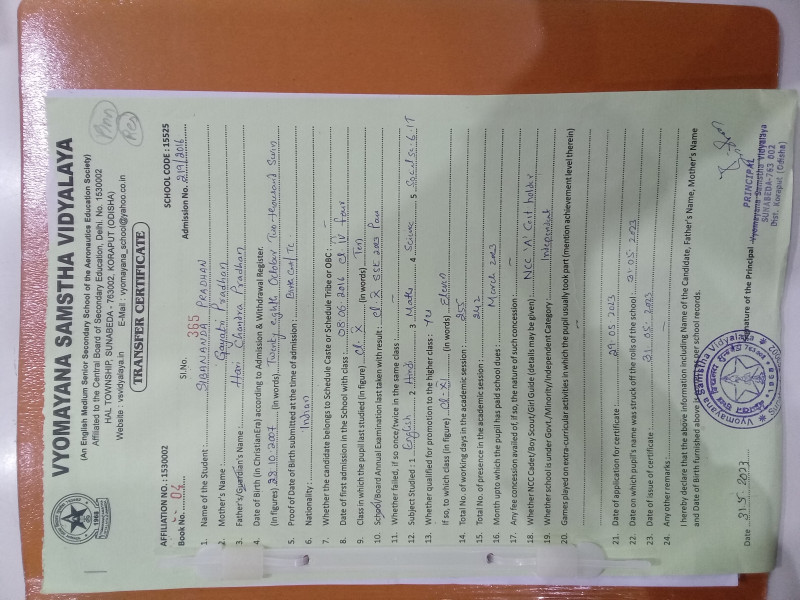 VYOMAYANA SAMSTHA VIDYALAYA
(An English Medium Senior Secondary School of the Aeronautics Education Society)
Affiliated to the Central Board of Secondary Education, Delhi. No. 1530002
HAL TOWNSHIP, SUNABEDA - 763002, KORAPUT (ODISHA)
Website : vsvidyalaya.in E-Mail : vyomayana_school@yahoo.co.in
TRANSFER CERTIFICATE
AFFILIATION NO. : 1530002 SCHOOL CODE : 15525
Book No. 04 Sl.No. 365 Admission No. 219/2016
1. Name of the Student : SIBANANDA PRADHAN
2. Mother's Name : Gayatri Pradhan
3. Father's/Guardian's Name : Hari Chandra Pradhan
4. Date of Birth (in Christian Era) according to Admission & Withdrawal Register.
(In figures) 28.10.2007 (In words) Twenty eighth October Two thousand Seven
5. Proof of Date of Birth submitted at the time of admission : Birth Cert/TC
6. Nationality : Indian
7. Whether the candidate belongs to Schedule Caste or Schedule Tribe or OBC : —
8. Date of first admission in the School with class : 08.06.2016 Cl IV Four
9. Class in which the pupil last studied (in figure) Cl. X (in words) Ten
10. School/Board Annual Examination last taken with result : Cl. X SSE 2023 Pass
11. Whether failed, if so once/twice in the same class : —
12. Subject Studied : 1 English 2 Hindi 3 Maths 4 Science 5 Social Sc. 6 IT
13. Whether qualified for promotion to the higher class : Yes
If so, to which class (in figure) Cl. XI (in words) Eleven
14. Total No. of working days in the academic session : 255
15. Total No. of presence in the academic session : 242
16. Month upto which the pupil has paid school dues : March 2023
17. Any fee concession availed of, if so, the nature of such concession : —
18. Whether NCC Cadet/Boy Scout/Girl Guide (details may be given) : NCC 'A' Cert holder
19. Whether school is under Govt./Minority/Independent Category : Independent
20. Games played on extra-curricular activities in which the pupil usually took part (mention achievement level therein)
—
21. Date of application for certificate : 29.05.2023
22. Date on which pupil's name was struck off the rolls of the school : 31.05.2023
23. Date of issue of certificate : 31.05.2023
24. Any other remarks : —
I hereby declare that the above information including Name of the Candidate, Father's Name, Mother's Name
and Date of Birth furnished above is per school records.
Date 31.5.2023 Signature of the Principal
PRINCIPAL
Vyomayana Samstha Vidyalaya
SUNABEDA-763 002
Dist. Koraput (Odisha)